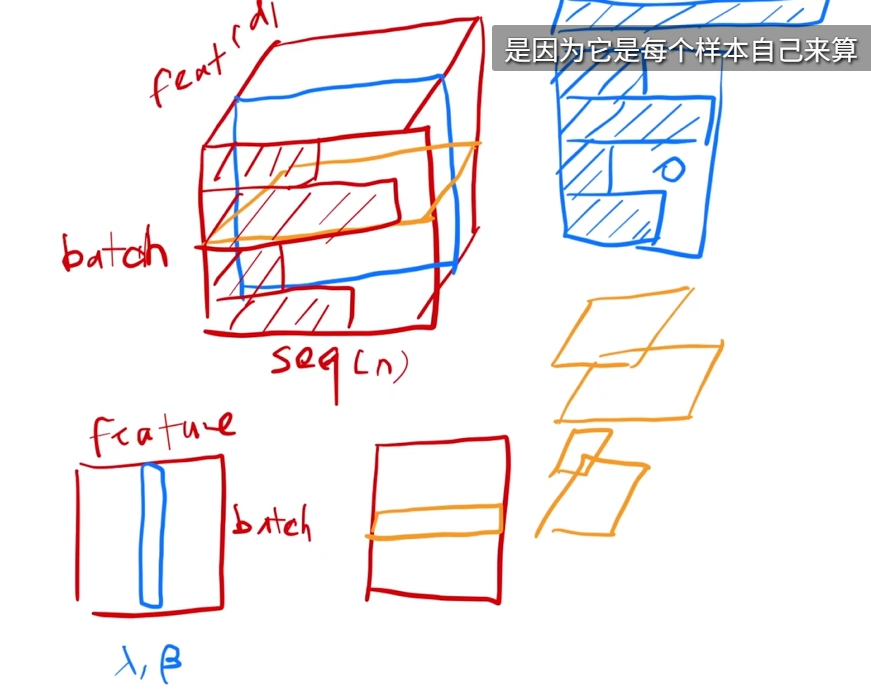 是因为它是每个样本自己来算
feat(d)
batch
seq(n)
feature
batch
λ, β